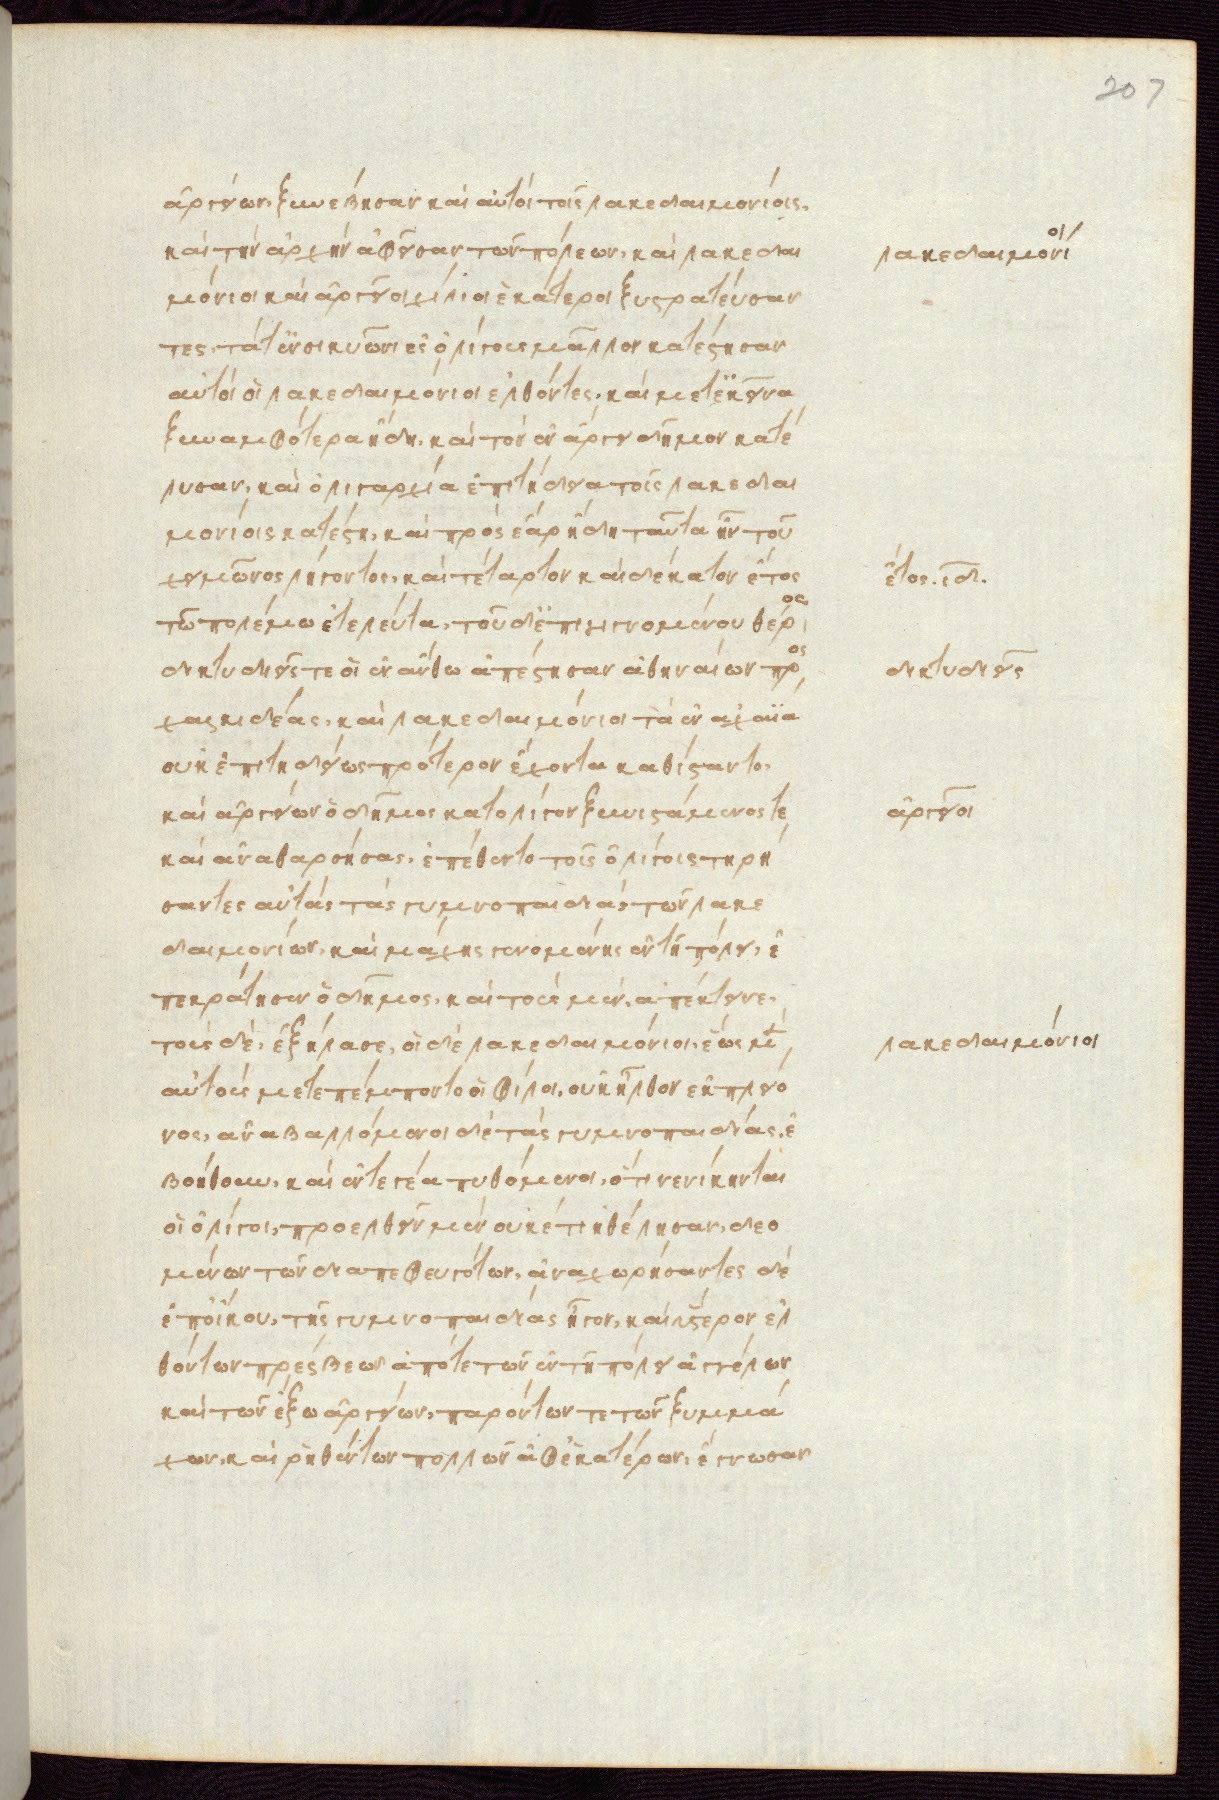 207
ἀργείων, ξυνέβησαν καὶ αὐτοὶ τοῖς λακεδαιμονίοις,
καὶ τὴν ἀρχὴν ἀφεῖσαν τῶν πόλεων, καὶ λακεδαι
λακεδαιμόνιοι
μόνιοι καὶ ἀργεῖοι χίλιοι ἑκάτεροι ξυστρατεύσαν
τες, τά τ' ἐν σικυῶνι ἐς ὀλίγους μᾶλλον κατέστησαν
αὐτοὶ οἱ λακεδαιμόνιοι ἐλθόντες, καὶ μετ' ἐκεῖνα
ξυναμφότερα ἤδη, καὶ τὸν ἐν ἄργει δῆμον κατέ
λυσαν, καὶ ὀλιγαρχία ἐπιτηδεία τοῖς λακεδαι
μονίοις κατέστη, καὶ πρὸς ἔαρ ἤδη ταῦτα ἦν τοῦ
χειμῶνος λήγοντος, καὶ τέταρτον καὶ δέκατον ἔτος
ἔτος. ιδ.
τῶ πολέμω ἐτελεύτα, τοῦ δ' ἐπιγιγνομένου θέρος
δικτυδιεῖς τε οἱ ἐν ἄνθω ἀπέστησαν ἀθηναίων πρὸς
δικτυδιεῖς
χαλκιδέας, καὶ λακεδαιμόνιοι τὰ ἐν ἀχαΐα
οὐκ ἐπιτηδείως πρότερον ἔχοντα καθίσταντο,
καὶ ἀργείων ὁ δῆμος κατ' ὀλίγον ξυνιστάμενός τε
ἀργεῖοι
καὶ ἀναθαρσήσας, ἐπέθεντο τοῖς ὀλίγοις τηρή
σαντες αὐτὰς τὰς γυμνοπαιδιὰς τῶν λακε
δαιμονίων, καὶ μάχης γενομένης ἐν τῆ πόλει, ἐ
πεκράτησεν ὁ δῆμος, καὶ τοὺς μὲν, ἀπέκτεινε,
τοὺς δὲ, ἐξήλασε, οἱ δὲ λακεδαιμόνιοι, ἕως μὲν
λακεδαιμόνιοι
αὐτοὺς μετεπέμποντο οἱ φίλοι, οὐκ ἦλθον ἐκ πλείο
νος, ἀναβαλλόμενοι δὲ τὰς γυμνοπαιδιὰς, ἐ
βοήθουν, καὶ ἐν τεγέα πυθόμενοι, ὅτι νενίκηνται
οἱ ὀλίγοι, προελθεῖν μὲν οὐκέτι ἠθέλησαν, δεο
μένων τῶν διαπεφευγότων, ἀναχωρήσαντες δὲ
ἐπ' οἴκου, τὴς γυμνοπαιδιὰς ἦγον, καὶ ὕστερον ἐλ
θόντων πρέσβεων ἀπό τε τῶν ἐν τῆ πόλει ἀγγέλων
καὶ τῶν ἔξω ἀργείων, παρόντων τε τῶν ξυμμά
χων, καὶ ῥηθέντων πολλῶν ἀφ' ἑκατέρων, ἔγνωσαν